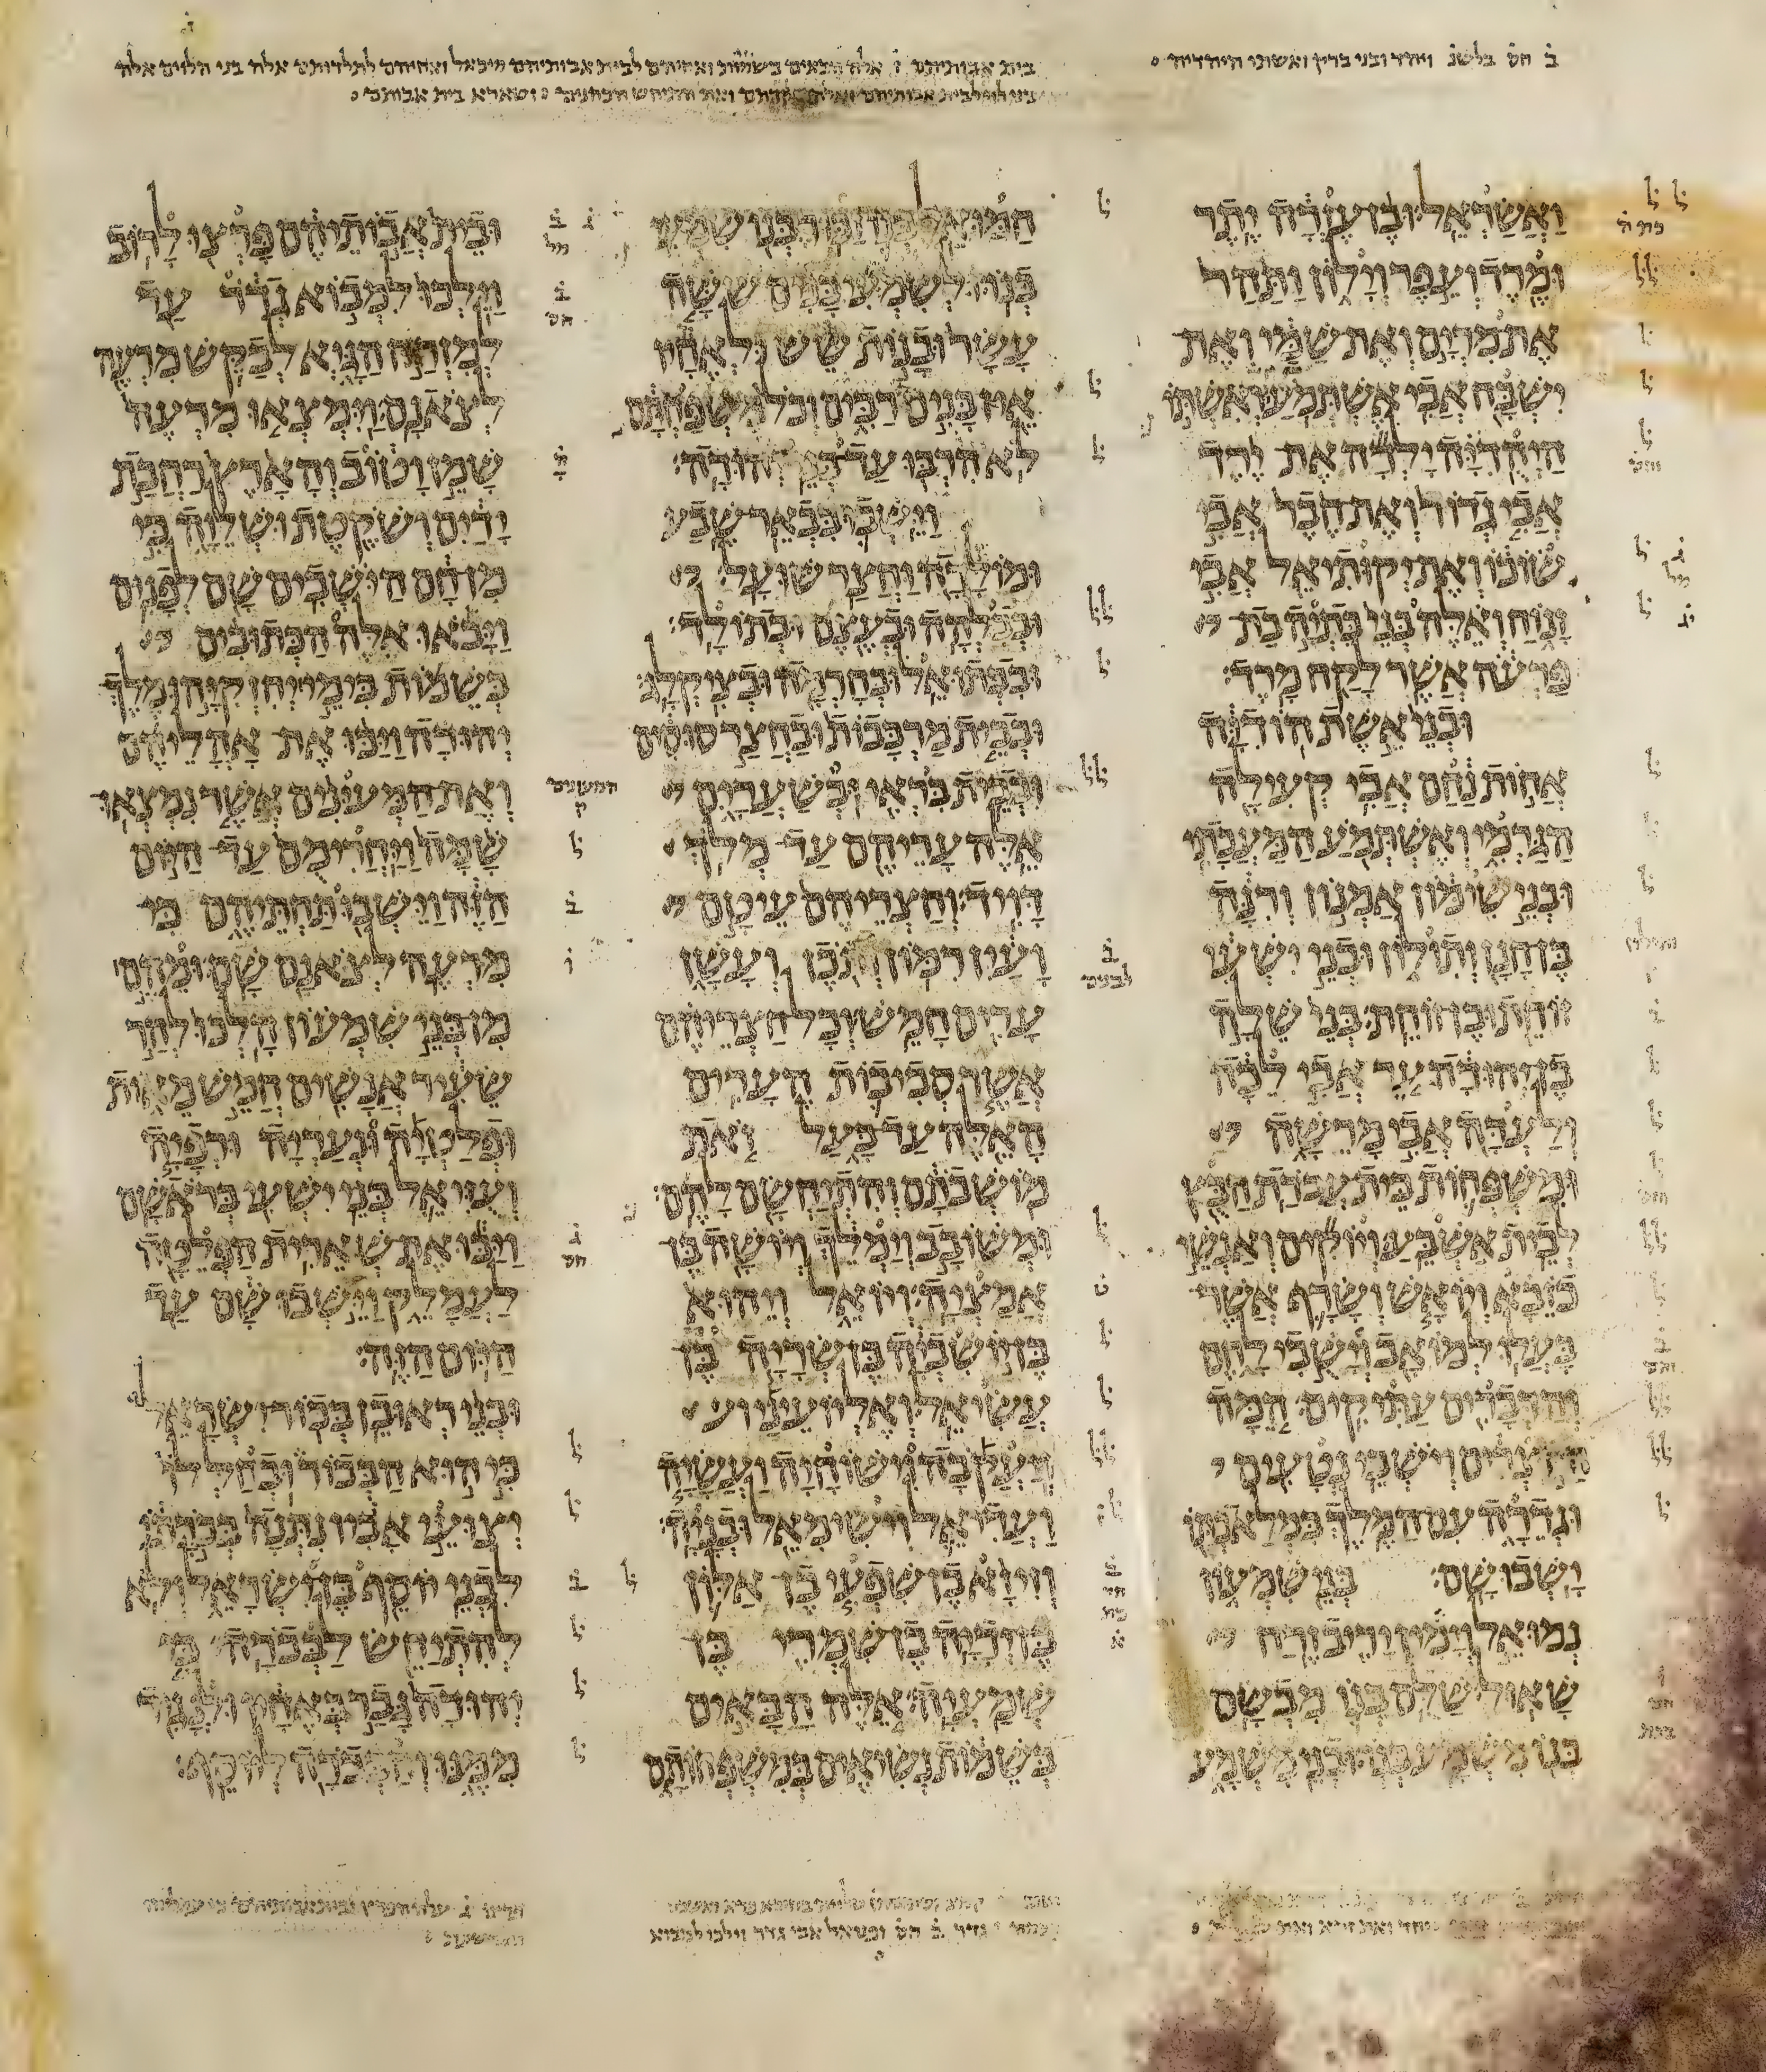 ואשתו היהדיה
ואשראל ובן עזרה יתר
ומרד ועפר וילון ותהר
את מרים ואת שמי ואת
ישבח אבי אשתמע ואשתו
היהדיה ילדה את ירד
אבי גדור ואת חבר אבי
שוכו ואת יקותיאל אבי
זנוח ואלה בני בתיה בת
פרעה אשר לקח מרד׃
ובני אשת הודיה
אחות נחם אבי קעילה
הגרמי ואשתמע המעכתי
ובני שימון אמנון ורנה
בן חנן ותולון ובני ישעי
זוחת ובן זוחת׃ בני שלה
בן יהודה ער אבי לכה
ולעדה אבי מרשה
ומשפחות בית עבדת הבץ
לבית אשבע׃ ויוקים ואנשי
כזבא ויואש ושרף אשר
בעלו למואב וישבי לחם
והדברים עתיקים׃ המה
היוצרים וישבי נטעים
וגדרה עם המלך במלאכתו
ישבו שם׃ בני שמעון
נמואל וימין יריב זרח
שאול׃ שלם בנו מבשם
בנו משמע בנו׃ ובני משמע
בית אבותיהם אלה הבאים בשמות ואחיהם לבית אבותיהם מיכאל ואחיהם לתלדותם אלה בני הלוים אלה
חמואל בנו זכור בנו שמעי
בנו׃ ולשמעי בנים ששה
עשר ובנות שש ולאחיו
אין בנים רבים וכל משפחתם
לא הרבו עד בני יהודה׃
וישבו בבאר שבע
ומולדה וחצר שועל׃
ובבלהה ובעצם ובתולד׃
ובבתואל ובחרמה ובציקלג׃
ובבית מרכבות ובחצר סוסים
ובבית בראי ובשערים
אלה עריהם עד מלך
דויד׃ וחצריהם עיטם
ועין רמון ותכן ועשן
ערים חמש׃ וכל חצריהם
אשר סביבות הערים
האלה עד בעל זאת
מושבתם והתיחשם להם׃
ומשובב וימלך ויושה בן
אמציה׃ ויואל ויהוא
בן יושביה בן שריה בן
עשיאל׃ ואליועיני ויע
קבה וישוחיה ועשיה
ועדיאל וישימאל ובניה׃
וזיזא בן שפעי בן אלון
בן ידיה בן שמרי בן
שמעיה׃ אלה הבאים
בשמות נשיאים במשפחותם
ובית אבותיהם פרצו לרוב׃
וילכו למבוא גדר עד
למזרח הגיא לבקש מרעה
לצאנם׃ וימצאו מרעה
שמן וטוב והארץ רחבת
ידים ושקטת ושלוה כי
מן חם הישבים שם לפנים
ויבאו אלה הכתובים
בשמות בימי יחזקיהו מלך
יהודה ויכו את אהליהם
ואת המעינים אשר נמצאו
המעונים ק
שמה ויחרימם עד היום
הזה וישבו תחתיהם כי
מרעה לצאנם שם׃ ומהם
מן בני שמעון הלכו להר
שעיר אנשים חמש מאות
ופלטיה ונעריה ורפיה
ועזיאל בני ישעי בראשם
ויכו את שארית הפלטה
לעמלק וישבו שם עד
היום הזה׃
ובני ראובן בכור ישראל
כי הוא הבכור ובחללו
יצועי אביו נתנה בכרתו
לבני יוסף בן ישראל ולא
להתיחש לבכרה׃ כי
יהודה גבר באחיו ולנגיד
ממנו והבכרה ליוסף׃